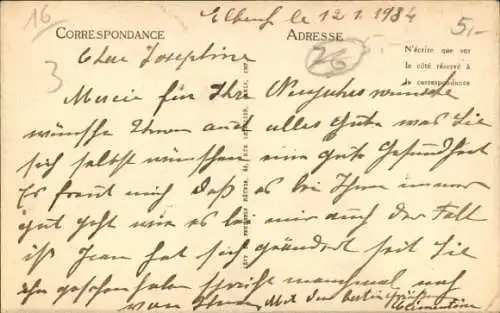 16
Elbeuf le 12 1. 1934
5,-
CORRESPONDANCE
ADRESSE
26
N'écrire que sur
le côté réservé à
la correspondance
3
Chere Josephine
Mercie für Ihre Neujahrswünsche
wünsche Ihnen auch alles Gute was Sie
sich selbst wünschen eine gute Gesundheit
Es freut mich daß es bei Ihnen immer
gut geht wie es bei mir auch der Fall
ist Jean hat sich geändert seit Sie
ihn gesehen haben spricht manchmal noch
von Ihnen Mit den besten Grüßen
Clementine